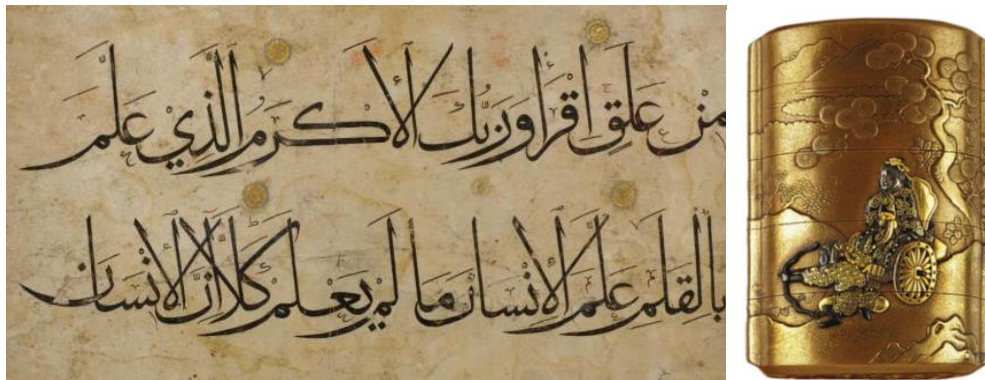 مِنْ عَلَقٍ اقْرَأْ وَرَبُّكَ الْأَكْرَمُ الَّذِي عَلَّمَ
بِالْقَلَمِ عَلَّمَ الْإِنْسَانَ مَا لَمْ يَعْلَمْ كَلَّا إِنَّ الْإِنْسَانَ